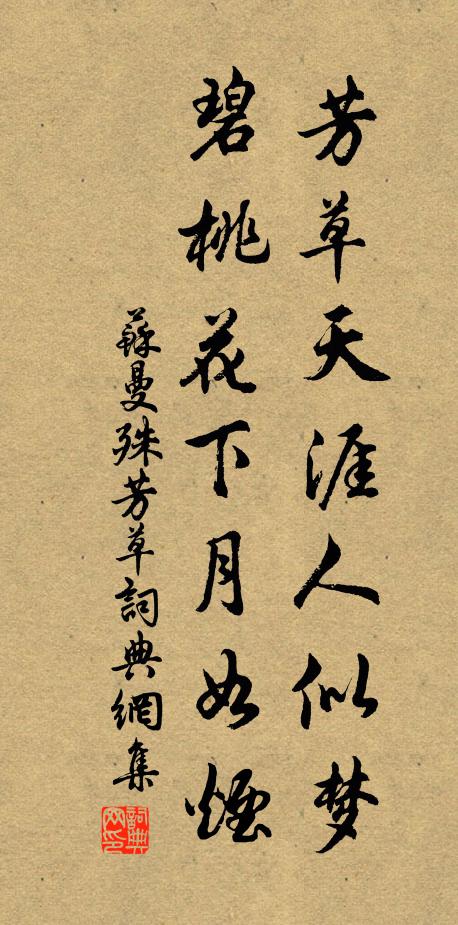 芳草天涯人似梦
碧桃花下月如煙
蘇曼殊芳草詞典網集
詞典網印